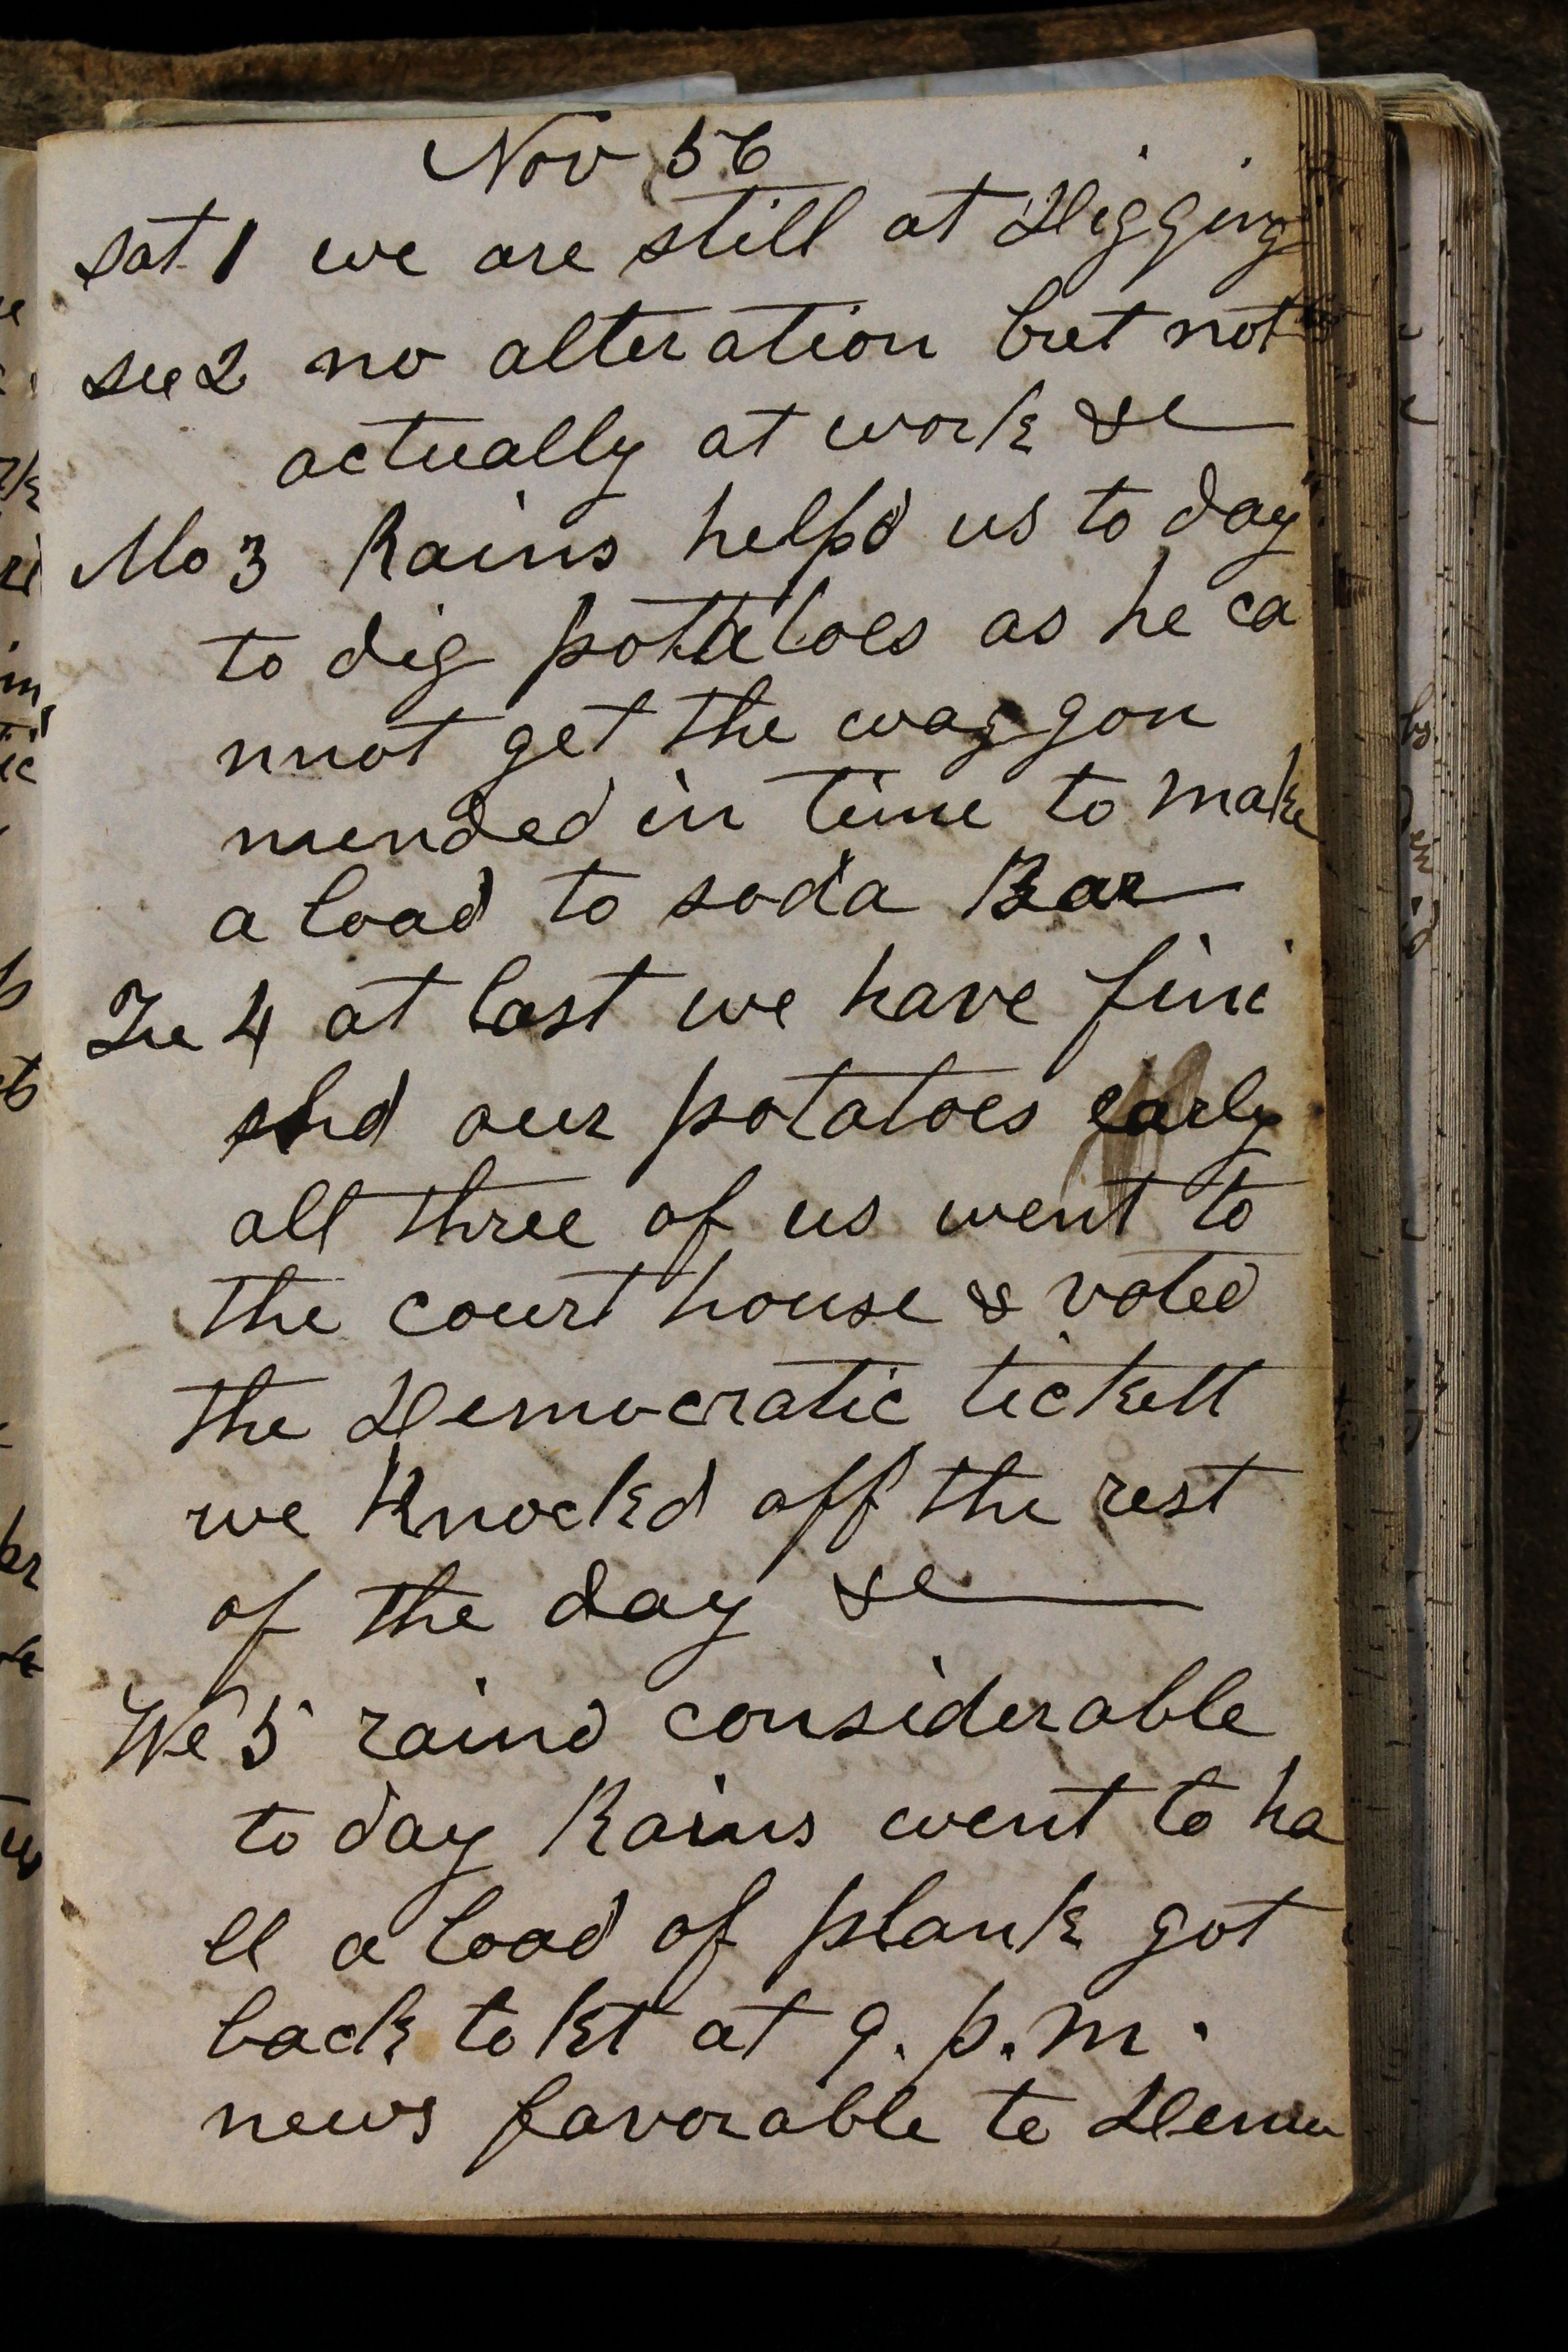 Nov 56
sat 1 we are still at Digging
su 2 no alteration but not
actually at work &c
Mo 3 Rains helpd us to day
to dig pottatoes as he ca
nnot get the waggon
mended in time to make
a load to soda Bar
Tu 4 at last we have fini
shd our potatoes early
all three of us went to
the court house & voted
the Democratic tickett
we knockd off the rest
of the day &c
We 5 raind considerable
to day Rains went to ha
ll a load of plank got
back to kt at 9. p. m.
news favorable to Demo